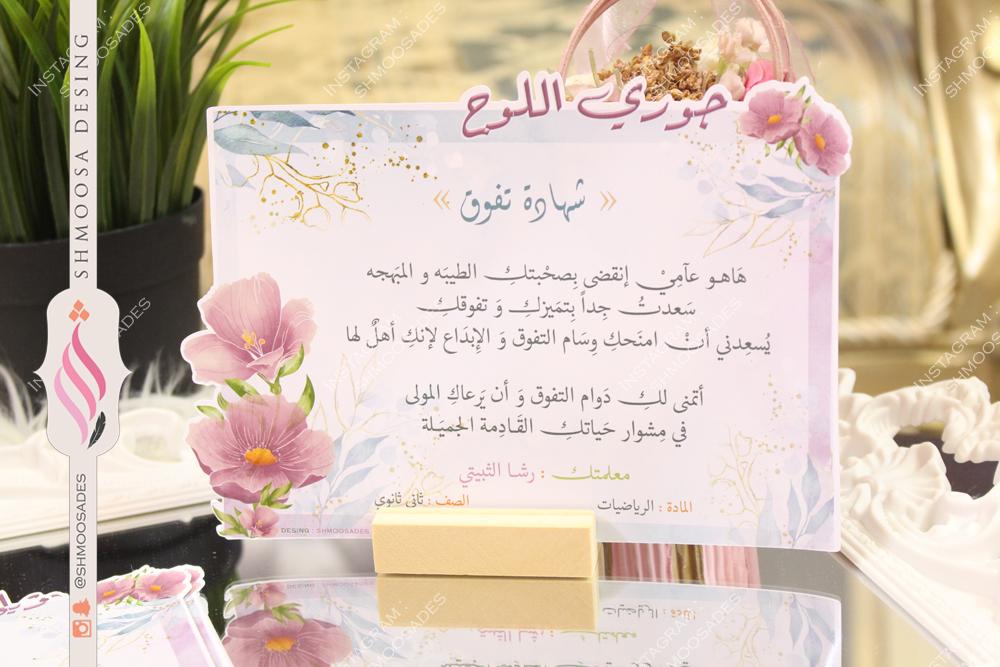 جوري اللوح
« شهادة تفوق »
هَاهـو عآمِيْ إنقضى بِصحْبتكِ الطيبَه و المبَهجه
سَعدتُ جِداً بِتمَيزكِ وَ تفوقكِ
يُسعِدني أنْ امنَحكِ وِسَام التفوق وَ الإبدَاع لإنكِ أهلٌ لها
أتمنى لكِ دَوام التفوق وَ أن يَرعاكِ المولى
في مِشوار حَياتكِ القَادِمة الجميَلة
معلمتك : رشا الثبيتي
المادة : الرياضيات
الصف : ثاني ثانوي
DESING : SHMOOSADES
SHMOOSA DESING
@SHMOOSADES
INSTAGRAM : SHMOOSADES